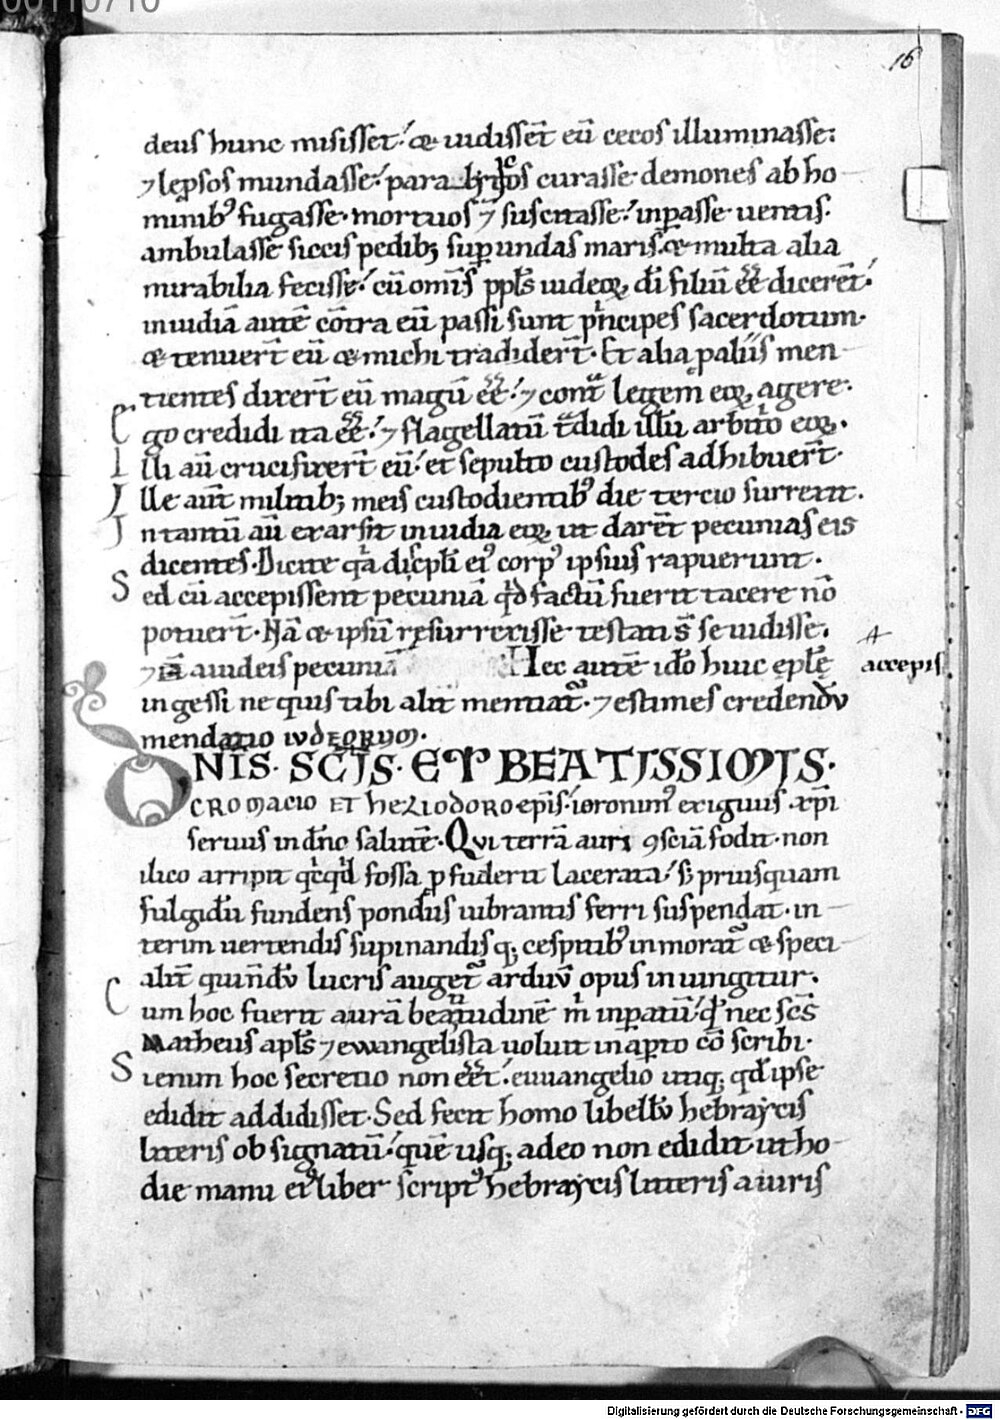 00110710
16
deus hunc misisset; & uidissēt eū cecos illuminasse;
⁊ leprosos mundasse; paraliticos curasse demones ab ho
minibꝰ fugasse. mortuos ⁊ suscitasse; inꝑasse uentis.
ambulasse siccis pedibꝫ suꝑ undas maris. & multa alia
mirabilia fecisse; cū om̄s ppl̄s iudeoꝝ, dī filiū ēē dicerēt;
inuidiā autē cōtra eū passi sunt pⁱncipes sacerdotum.
& tenuer̄t eū & michi tradider̄t. Et alia pal iis men
tientes dixer̄t eū magū ēē; ⁊ contᵃ legem eoꝝ agere.
Ego credidi ita ēē; ⁊ flagellatū tᵃdidi illū arbitⁱo eoꝝ.
Illi aū crucifixer̄t eū; et sepulto custodes adhibuer̄t.
Ille aūt militibꝫ meis custodientibꝰ die tercio surrexit.
In tantū aū exarsit inuidia eoꝝ ut darēt pecunias eis
dicentes. Dicite qⁱa discipl̄i eiꝰ corpꝰ ipsius rapuerunt.
Sed cū accepissent pecuniā qᵒd factū fuerit tacere nō
potuer̄t. Nā & ipsū resurrexisse testati s̄ se uidisse;
⁊ iā a iudeis pecuniā Hec autē ido huic epl̄ę accepis
ingessi ne quis tibi alit̄ mentiatᷣ. ⁊ estimes credendū
mendatio iudeorum.
DNĪS. SC̄IS. ET BEATISSIMIS.
CROMACIO ET HELIODORO ep̄is. ieronimꝰ exiguus xp̄i
seruus in dn̄o salutē. Qui terrā auri ꝯsciā fodit. non
ilico arripit qⁱcqⁱd fossa ꝓfuderit lacerata; s; priusquam
fulgidū fundens pondus uibrantis ferri suspendat. in
terim uertendis supinandisqꝫ cespitibꝰ inmoratᷣ & speci
alit̄ qui nondū lucris augetᷣ arduū opus iniungitur.
Cum hoc fuerit aurā beatitudinē m inꝑatū; qᵈ nec sc̄s
Matheus apl̄s ⁊ ewangelista uoluit in aꝑto cō scribi.
Si enim hoc secretio non ēēt. euuangelio utiqꝫ qd ipse
edidit addidisset. Sed fecit homo libellū hebraycis
litteris obsignatū; quē usqꝫ adeo non edidit ut ho
die manu eiꝰ liber scriptꝰ hebraycis litteris a uiris
Digitalisierung gefördert durch die Deutsche Forschungsgemeinschaft - DFG